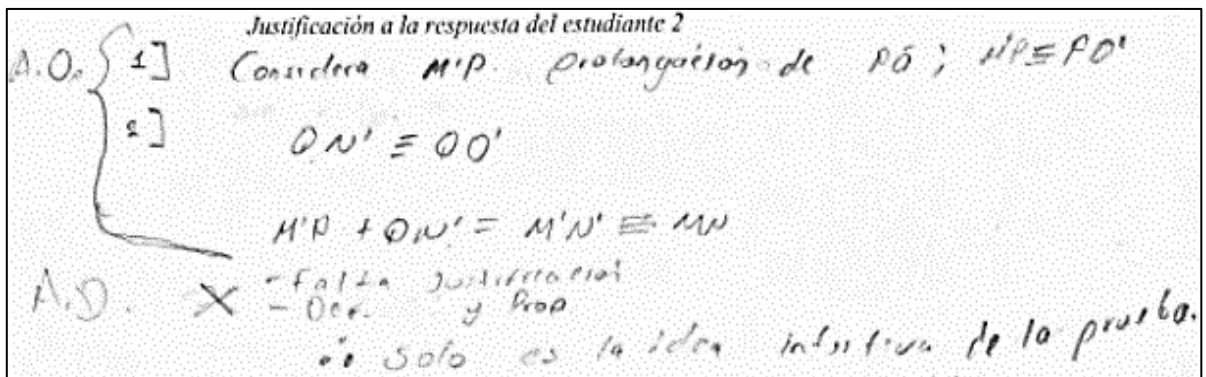 Justificación a la respuesta del estudiante 2
A.O. 1] Considera M'P. Prolongación de PO; M'P ≡ PO'
2] QN' ≡ OO'
M'P + QN' = M'N' ≡ MN
A.D. X - Falta Justificación
- Def. y Prop
∴ Solo es la idea intuitiva de la prueba.